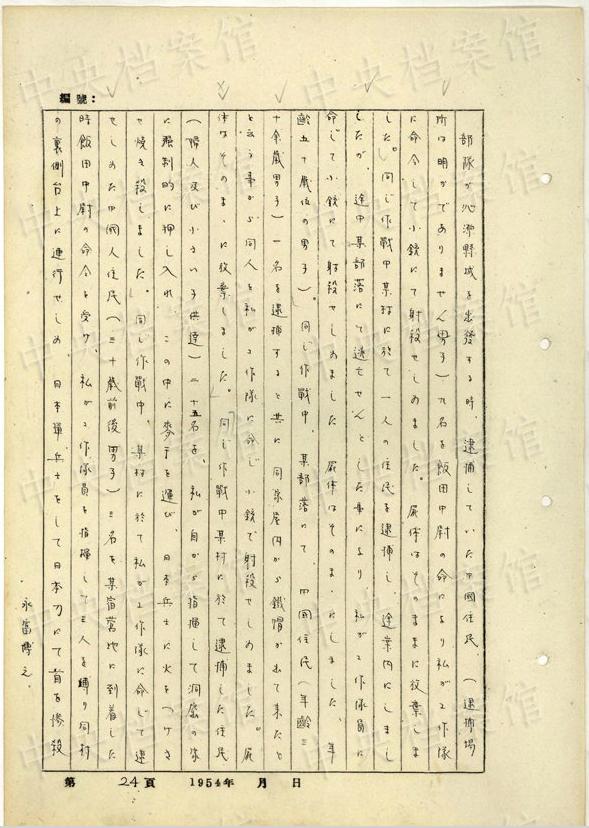 編號：
部隊が沁源縣城を出發する時、逮捕していた中國住民、（逮捕場
所は明かでありません男子）九名を飯田中尉の命により私が工作隊
に命令して小銃にて射殺せしめました。屍体はそのままに放棄しま
した。同じ作戰中某村に於て一人の住民を逮捕し、途案内にしまし
たが、途中某部落にて逃亡せんとした事により、私が工作隊員に
命じて小銃にて射殺せしめました 屍体はそのまゝにしました、年
齡五十歲位の男子）。同じ作戰中、某部落にて、中國住民（年齡三
十余歲男子）一名を逮捕すると共に同家屋内から鐵帽が出て來たと
云う事から同人を私が工作隊に命じ小銃で射殺せしめました。屍
体はそのまゝに放棄しました。同じ作戰中某村に於て逮捕した住民
（婦人及び小さい子供達）二十五名を、私が自から指揮して洞窟の家
に强制的に押し入れ、この中に麥干を運び、日本兵士に火をつけさ
せ燒き殺しました。同じ作戰中、某村に於て私が工作隊に命じて逮
せしめた中國人住民（三十歲前後男子）三名を某宿營地に到着した
時飯田中尉の命令を受け、私が工作隊員を指揮して三人を縛り同村
の裏側台上に連行せしめ、日本軍兵士をして日本刀にて首を慘殺
永富博之
第 24頁 1954年 月 日
中央档案馆